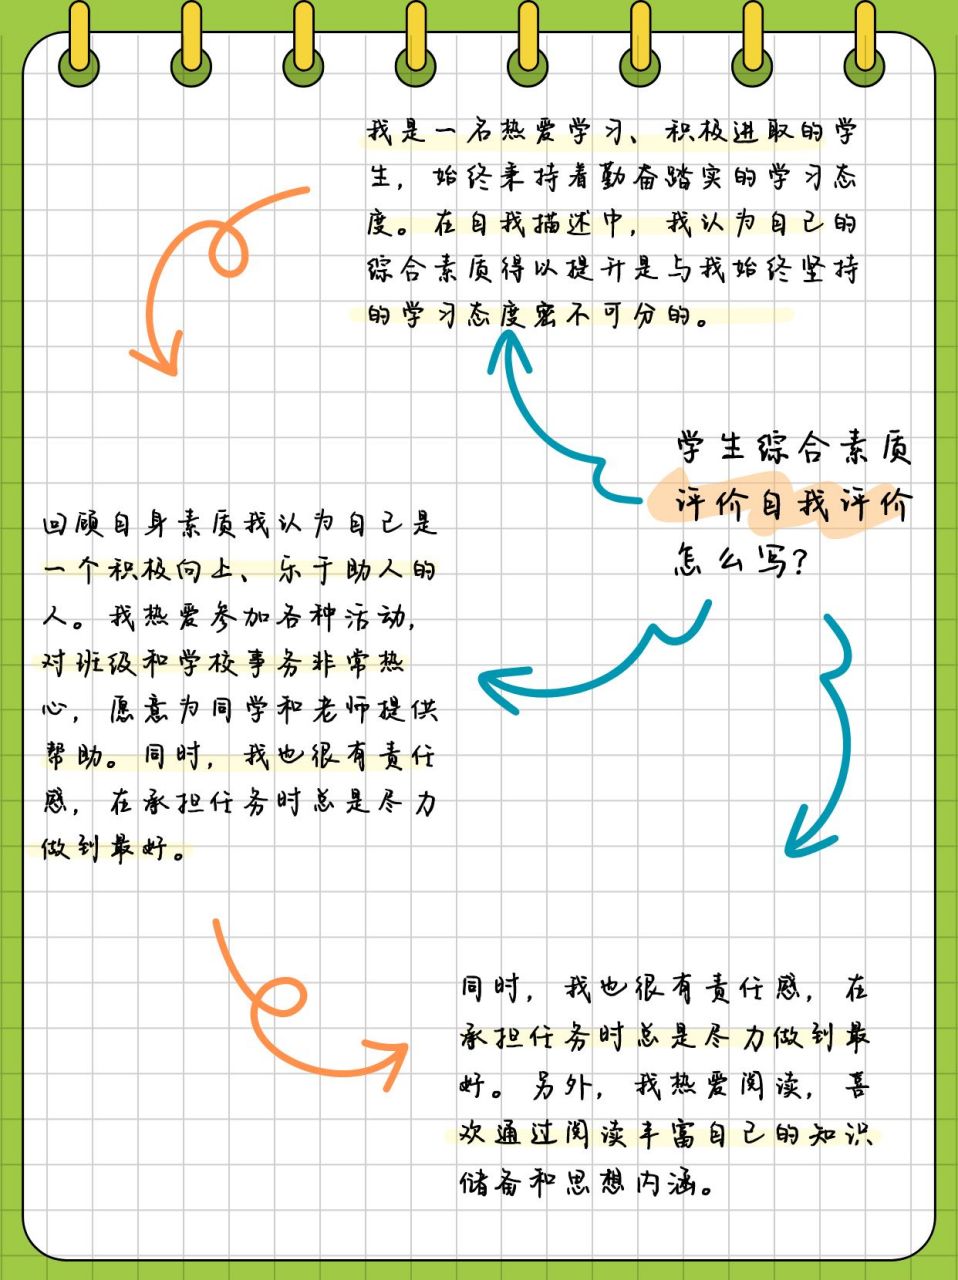 我是一名热爱学习、积极进取的学
生，始终秉持着勤奋踏实的学习态
度。在自我描述中，我认为自己的
综合素质得以提升是与我始终坚持
的学习态度密不可分的。
学生综合素质
评价自我评价
怎么写？
回顾自身素质我认为自己是
一个积极向上、乐于助人的
人。我热爱参加各种活动，
对班级和学校事务非常热
心，愿意为同学和老师提供
帮助。同时，我也很有责任
感，在承担任务时总是尽力
做到最好。
同时，我也很有责任感，在
承担任务时总是尽力做到最
好。另外，我热爱阅读，喜
欢通过阅读丰富自己的知识
储备和思想内涵。